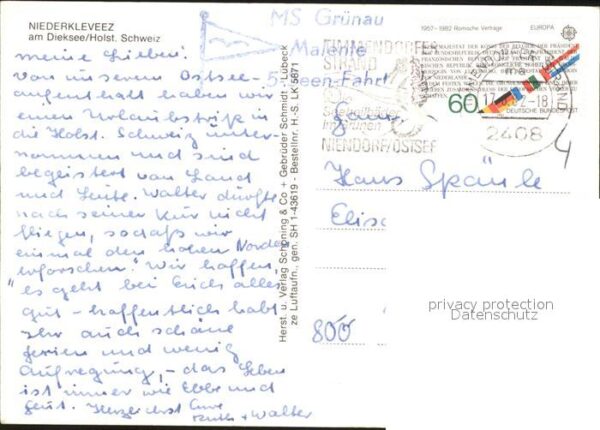 NIEDERKLEVEEZ
am Dieksee/Holst. Schweiz
meine Lieben!
Von unserem Ostsee-
aufenthalt haben wir
einen Urlaubstrip in
die Holst. Schweiz unter-
nommen und sind
begeistert von Land
und Leute. Walter dürfte
nach seiner Kur nicht
fliegen, sodaß wir
einmal den hohen Norden
"erforschen". Wir hoffen,
es geht bei Euch alles
gut - hoffentlich habt
Ihr auch schöne
Ferien und wenig
Aufregung, - das Leben
ist immer wie Ebbe und
Flut. Herzlichst Eure
Ruth + Walter
Herst. u. Verlag Schöning & Co + Gebrüder Schmidt · Lübeck
ze Luftaufn., gen. SH 1-43619 - Bestellnr. H.-S. LK 5871
MS Grünau
Malente
5-Seen-Fahrt
TIMMENDORFER
STRAND
NIENDORF/OSTSEE
1957-1982 Römische Verträge EUROPA
60
DEUTSCHE BUNDESPOST
2408
Fam.
Hans Spänle
Elisa
800
4
privacy protection
Datenschutz